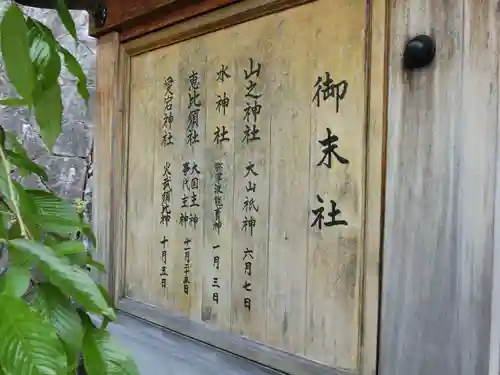 御末社
山之神社 大山祇神 六月七日
水神社 弥津波能賣神 一月三日
恵比須社 大国主神 事代主神 十一月二十五日
愛宕神社 火武須比神 十月五日